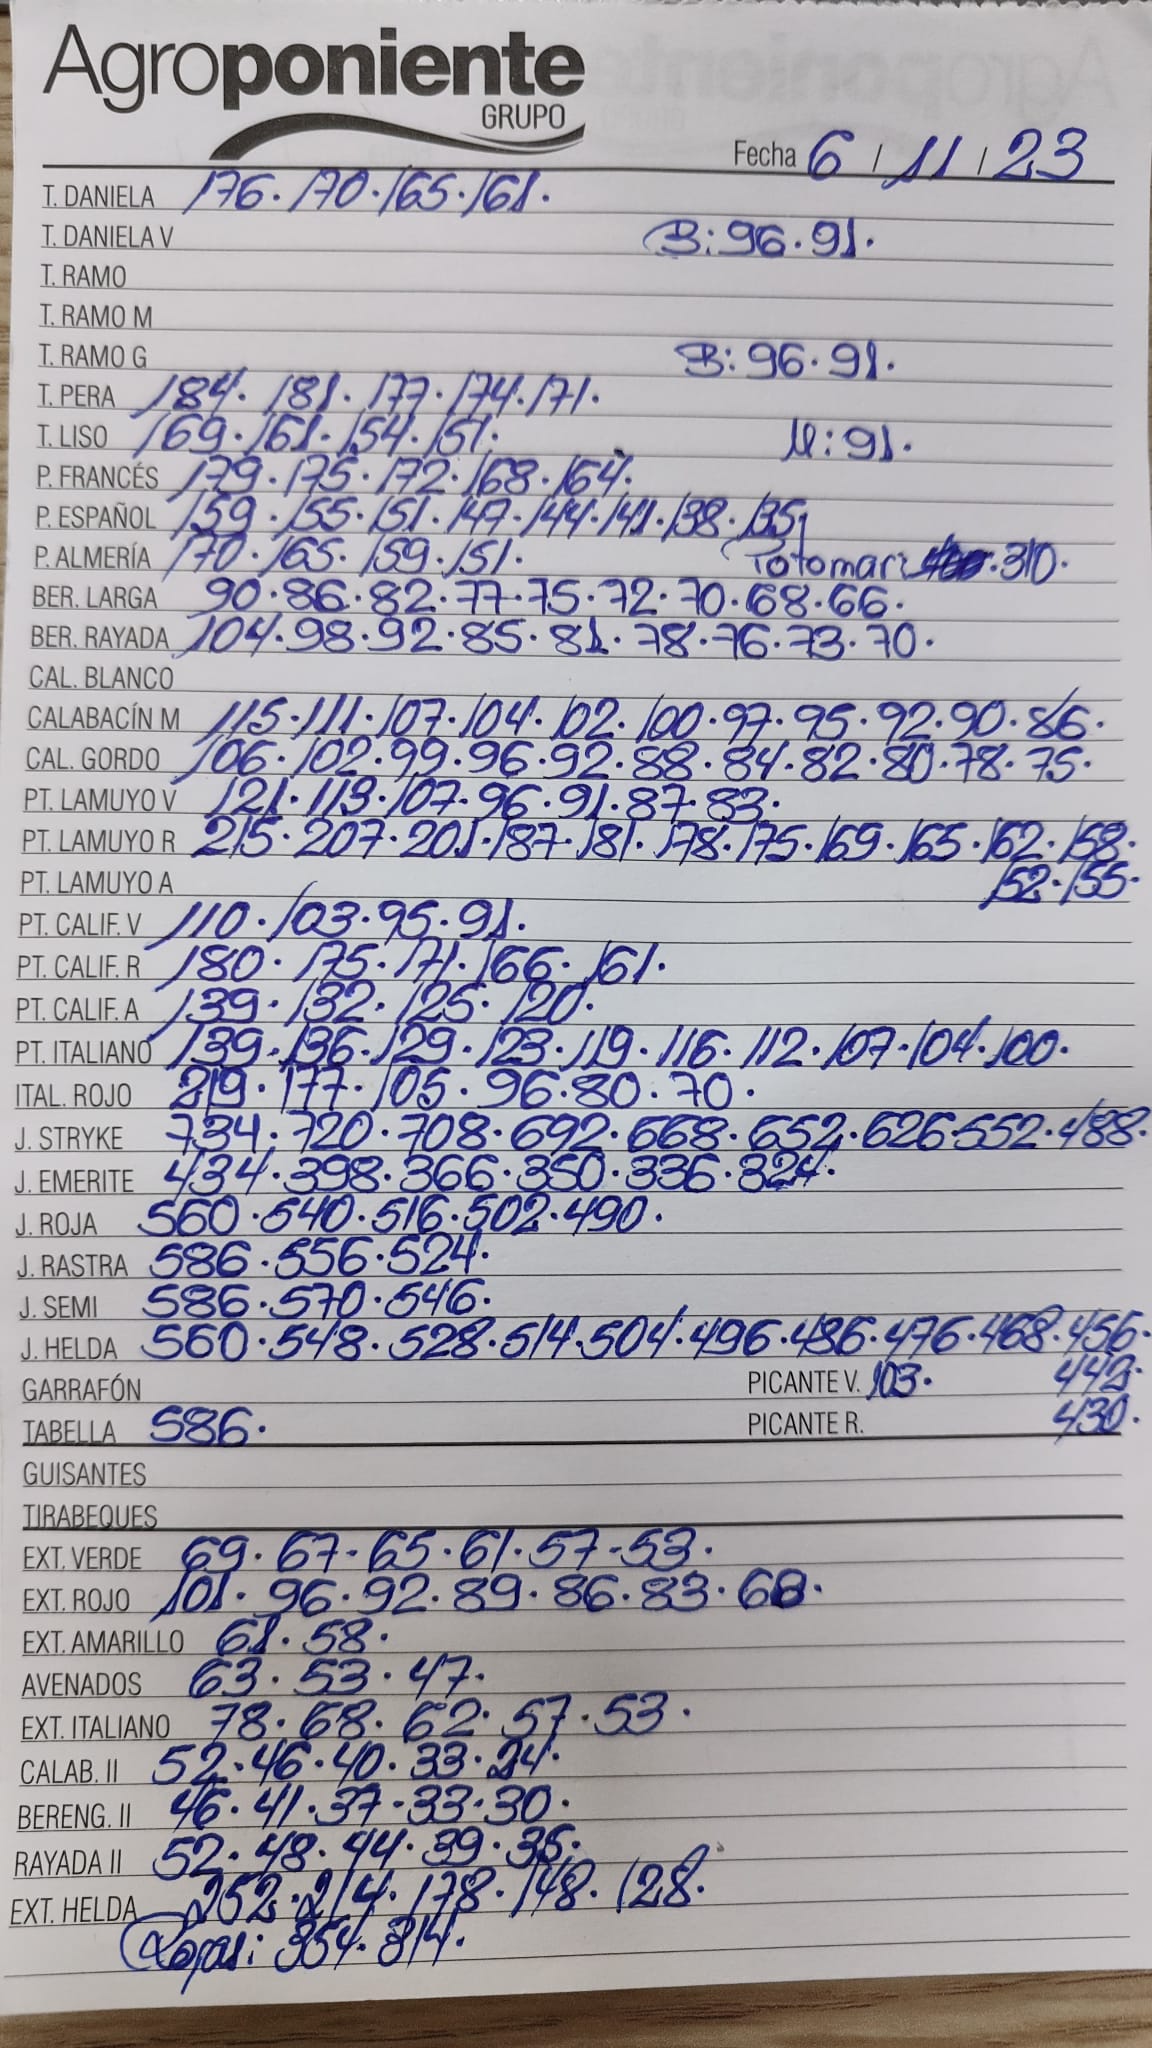 Agroponiente
GRUPO
Fecha 6 / 11 / 23
T. DANIELA 176. 170. 165. 161.
T. DANIELA V B: 96. 91.
T. RAMO
T. RAMO M
T. RAMO G B: 96. 91.
T. PERA 184. 181. 177. 174. 171.
T. LISO 169. 161. 154. 151. M: 91.
P. FRANCÉS 179. 175. 172. 168. 164.
P. ESPAÑOL 159. 155. 151. 147. 144. 141. 138. 135
P. ALMERÍA 170. 165. 159. 151. 310.
BER. LARGA 90. 86. 82. 77. 75. 72. 70. 68. 66.
BER. RAYADA 104. 98. 92. 85. 81. 78. 76. 73. 70.
CAL. BLANCO
CALABACÍN M 115. 111. 107. 104. 102. 100. 97. 95. 92. 90. 86.
CAL. GORDO 106. 102. 99. 96. 92. 88. 84. 82. 80. 78. 75.
PT. LAMUYO V 121. 113. 107. 96. 91. 87. 83.
PT. LAMUYO R 215. 207. 201. 187. 181. 178. 175. 169. 165. 162. 158.
PT. LAMUYO A 152. 155.
PT. CALIF. V 110. 103. 95. 91.
PT. CALIF. R 180. 175. 171. 166. 161.
PT. CALIF. A 139. 132. 125. 120.
PT. ITALIANO 139. 136. 129. 123. 119. 116. 112. 107. 104. 100.
ITAL. ROJO 219. 177. 105. 96. 80. 70.
J. STRYKE 734. 720. 708. 692. 668. 652. 626. 552. 488.
J. EMERITE 434. 398. 366. 350. 336. 324.
J. ROJA 560. 540. 516. 502. 490.
J. RASTRA 586. 556. 524.
J. SEMI 586. 570. 546.
J. HELDA 560. 548. 528. 514. 504. 496. 486. 476. 468. 456.
GARRAFÓN PICANTE V. 103. 442.
TABELLA 586. PICANTE R. 430.
GUISANTES
TIRABEQUES
EXT. VERDE 69. 67. 65. 61. 57. 53.
EXT. ROJO 101. 96. 92. 89. 86. 83. 68.
EXT. AMARILLO 61. 58.
AVENADOS 63. 53. 47.
EXT. ITALIANO 78. 68. 62. 57. 53.
CALAB. II 52. 46. 40. 33. 24.
BERENG. II 46. 41. 37. 33. 30.
RAYADA II 52. 48. 44. 39. 35.
EXT. HELDA 252. 214. 178. 148. 128.
Rojas: 354. 314.